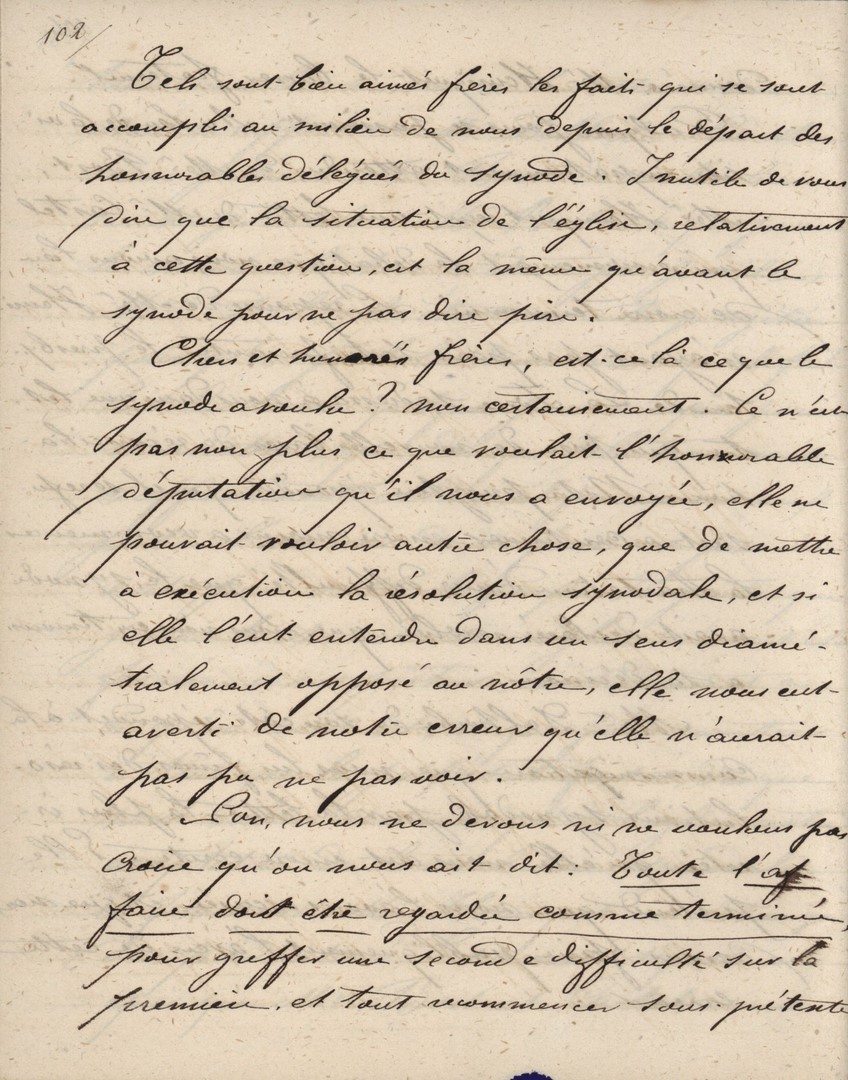 102/
Tels sont bien aimés frères les faits qui se sont
accomplis au milieu de nous depuis le départ des
honnorables délégués du synode. Inutile de vous
dire que la situation de l'église, relativement
à cette question, est la même qu'avant le
synode pour ne pas dire pire.
Chers et honorés frères, est-ce là ce que le
synode a voulu? non certainement. Ce n'est
pas non plus ce que voulait l'honnorable
députation qu'il nous a envoyée, elle ne
pouvait vouloir autre chose, que de mettre
à exécution la résolution synodale, et si
elle l'eut entendu dans un sens diamé-
tralement opposé au nôtre, elle nous eut
averti de notre erreur qu'elle n'aurait
pas pu ne pas voir.
Non, nous ne devons ni ne voulons pas
croire qu'on nous ait dit: Toute l'af
faire doit être regardée comme terminée,
pour greffer une seconde difficulté sur la
première, et tout recommencer sous prétexte